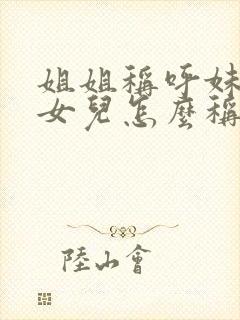 姐姐稱呼妹
女兒怎麼稱
陸山會